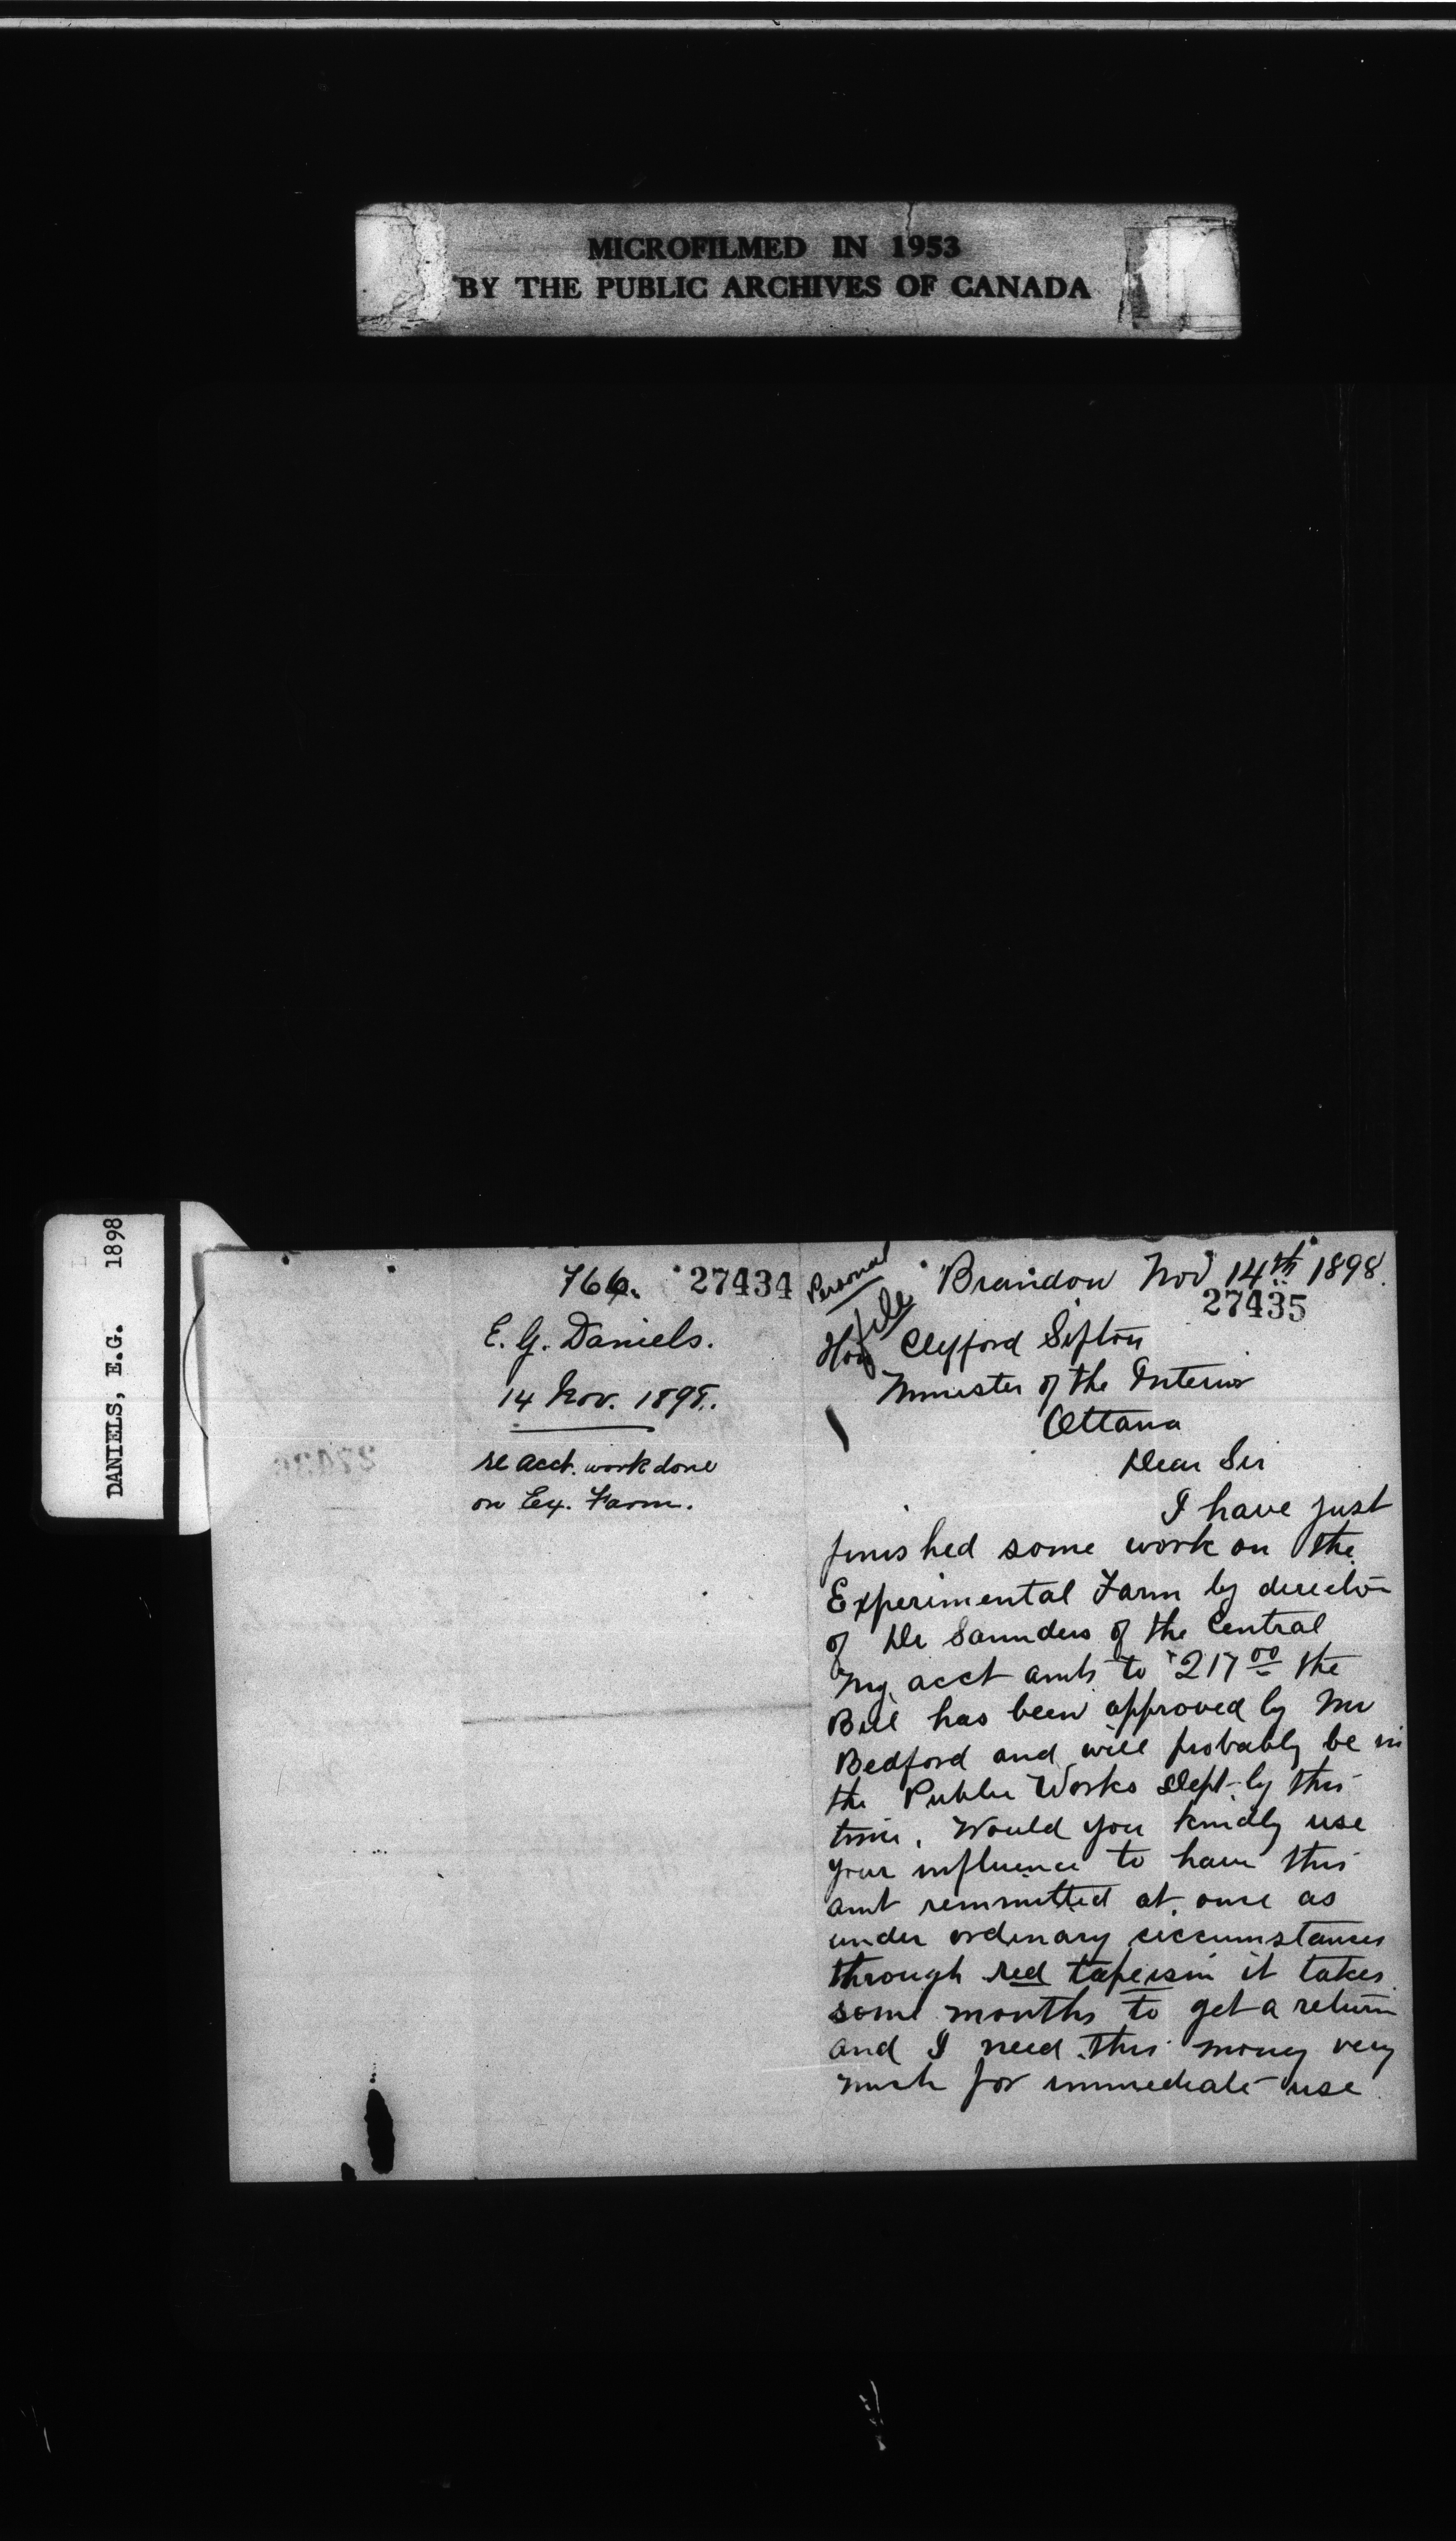 MICROFILMED IN 1953
BY THE PUBLIC ARCHIVES OF CANADA
DANIELS, E.G. 1898
766. 27434
E. G. Daniels.
14 Nov. 1898.
re acct. work done
on Ex. Farm.
Personal
file
Brandon Nov 14th 1898.
27435
Hon Clifford Sifton
Minister of the Interior
Ottawa
Dear Sir
I have just
finished some work on the
Experimental Farm by direction
of Dr Saunders of the Central
My acct amts to 217 00 the
Bill has been approved by Mr
Bedford and will probably be in
the Public Works Dept by this
time. Would you kindly use
your influence to have this
amt remmitted at once as
under ordinary circumstances
through red tapeism it takes
some months to get a return
and I need this money very
much for immediate use